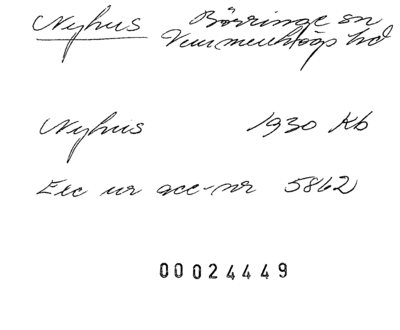 Nyhus Börringe sn
Vemmenhögs hd
Nyhus 1930 Kb
Exc ur acc-nr 5862
00024449